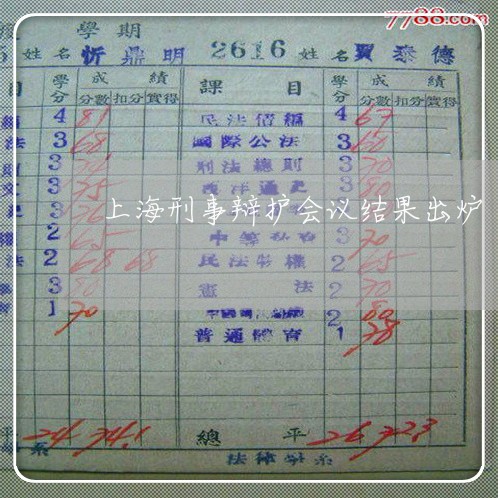 7788.com
學期
姓名 忻鼎明 2616 姓名 賈泰德
目 學分 成績 課目 學分 成績
分數 扣分 實得 分數 扣分 實得
4 81 民法債編 4 67
法 3 68 國際公法 3 60
3 刑法總則 3 70
文 3 75 西洋通史 3 80
3 3
上海刑事辩护会议结果出炉
權 2 65 3 70
法 2 68 68 民法物權 2 65
3 80 憲法 2 70
育 1 70 2 80
普通體育 1 78
平 24 74.1 總平 26 72.3
系 法律學系